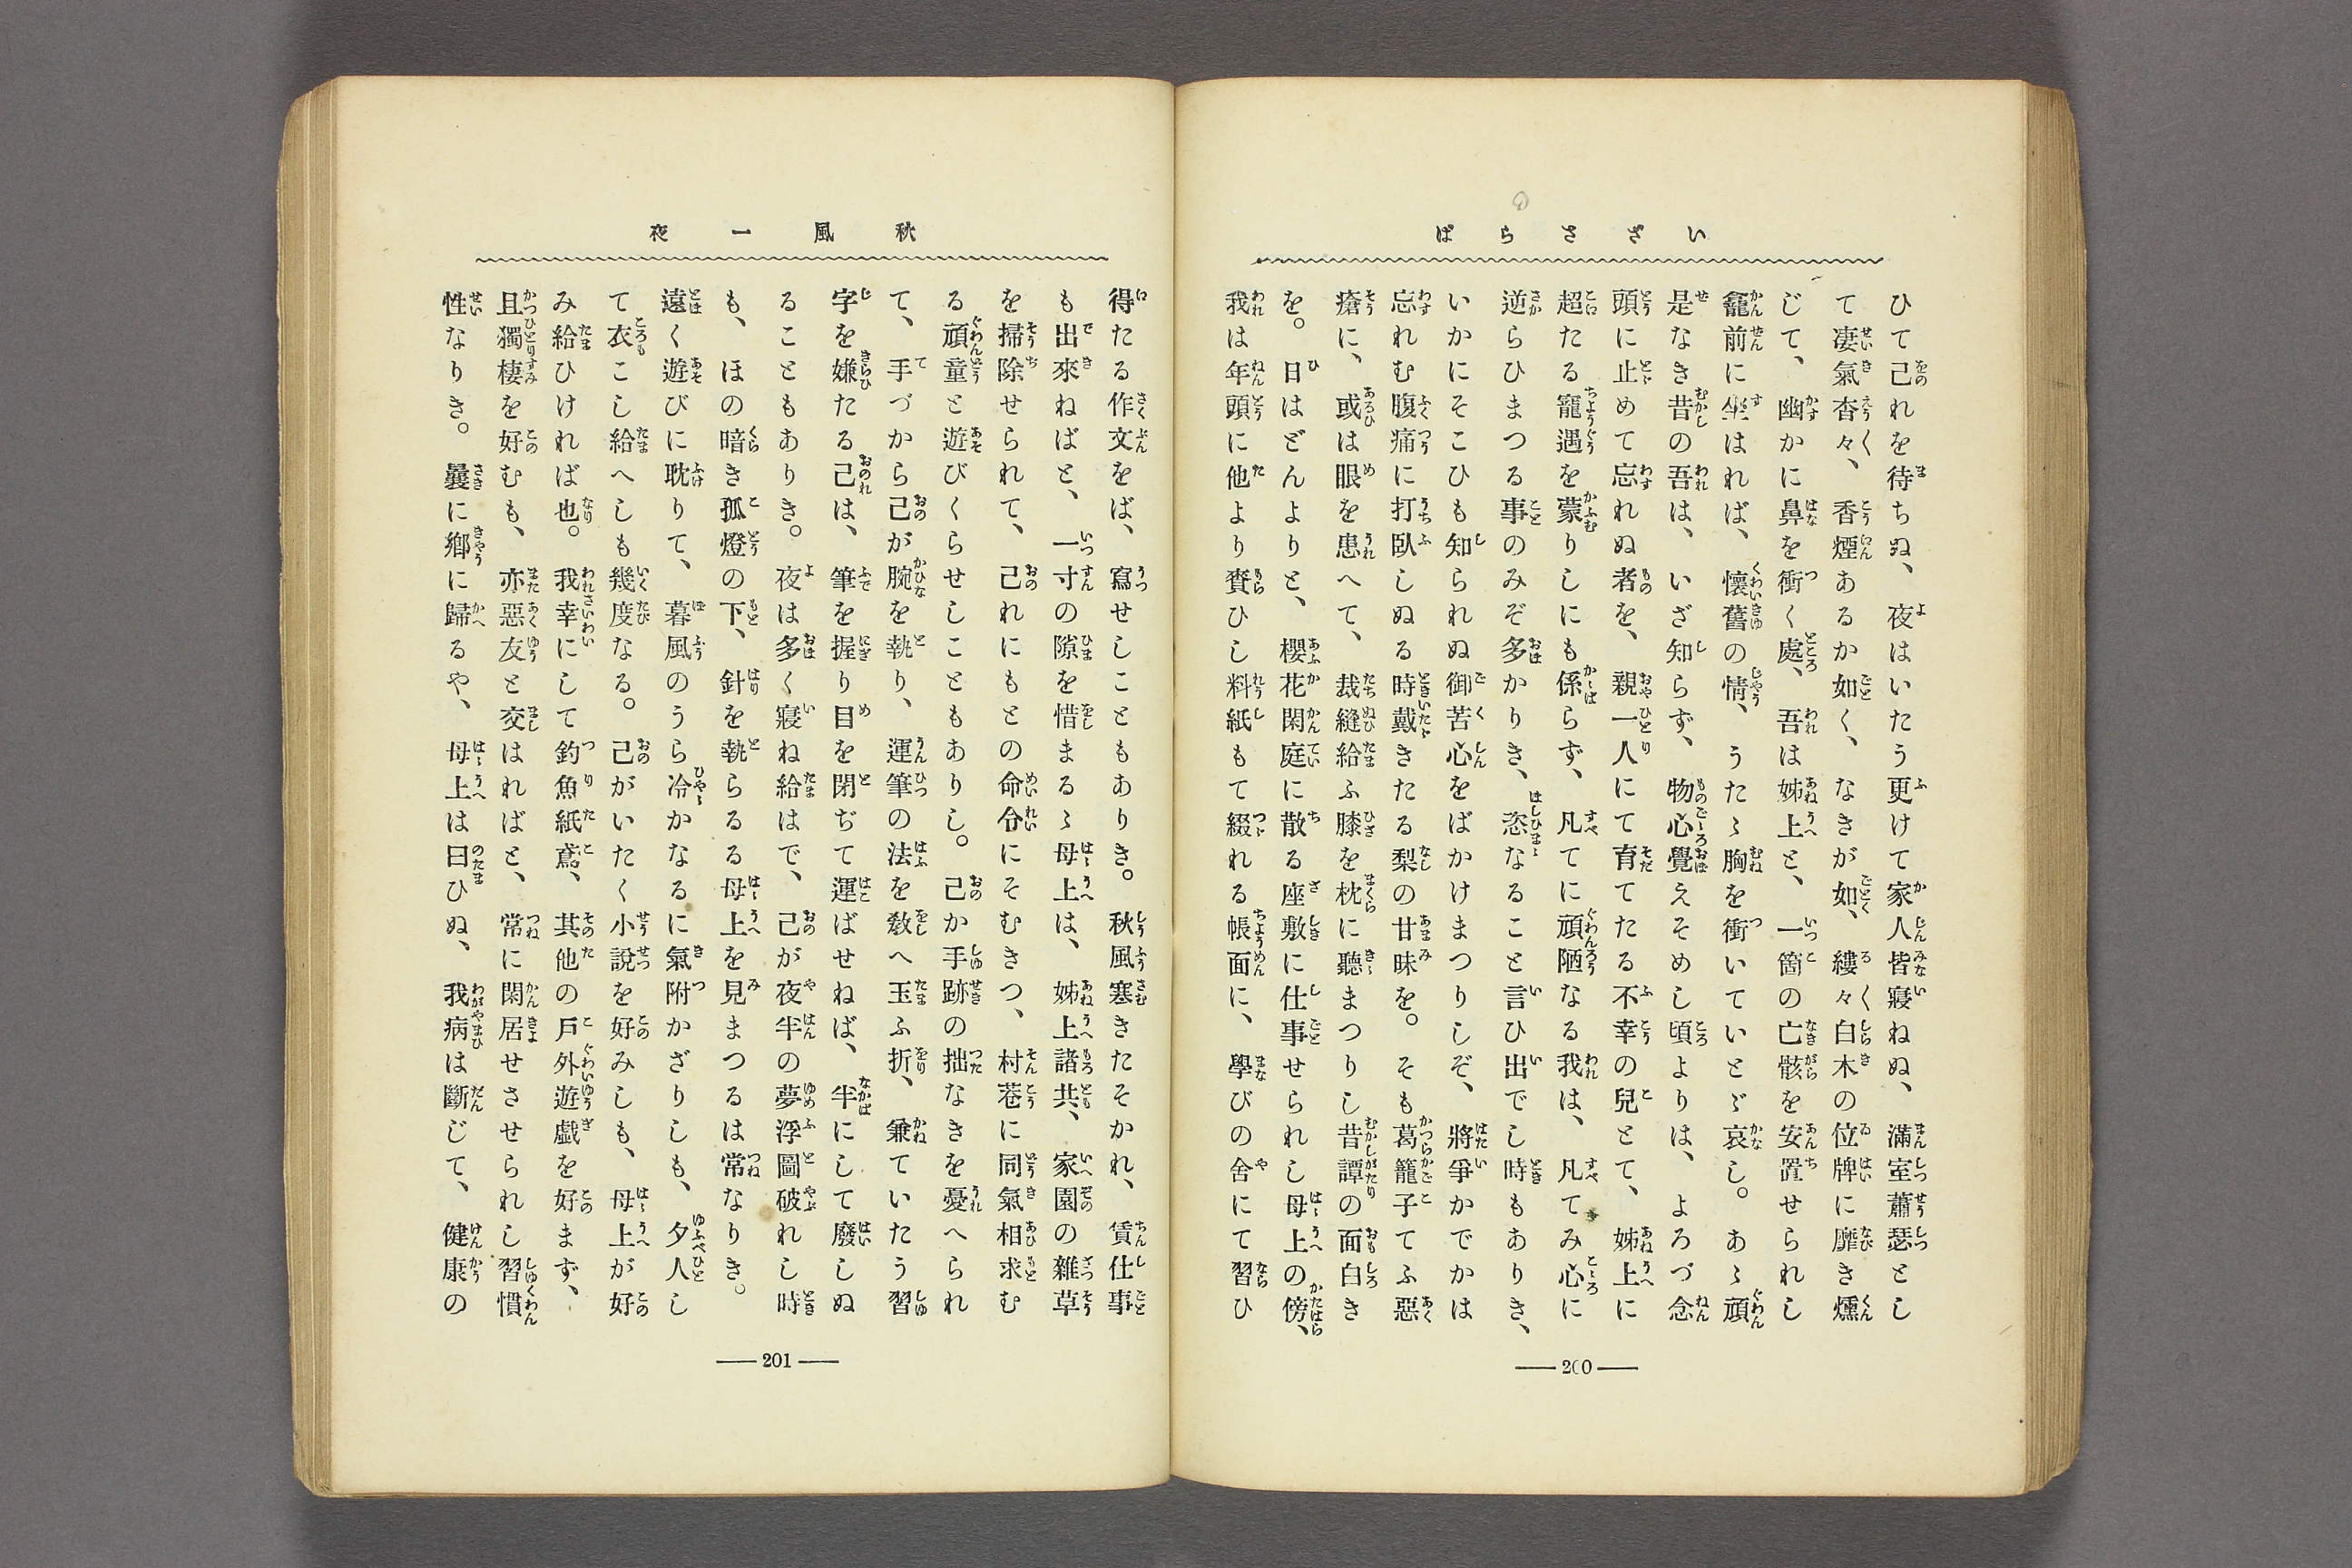 いざさらば
ひて己れを待ちぬ、夜はいたう更けて家人皆寢ねぬ、滿室蕭瑟とし
て凄氣杳々、香煙あるか如く、なきが如、縷々白木の位牌に靡き燻
じて、幽かに鼻を衝く處、吾は姊上と、一箇の亡骸を安置せられし
龕前に坐はれば、懷舊の情、うたゝ胸を衝いていとゞ哀し。あゝ頑
是なき昔の吾は、いざ知らず、物心覺えそめし頃よりは、よろづ念
頭に止めて忘れぬ者を、親一人にて育てたる不幸の兒とて、姊上に
超たる寵遇を蒙りしにも係らず、凡てに頑陋なる我は、凡てみ心に
逆らひまつる事のみぞ多かりき、恣なること言ひ出でし時もありき、
いかにそこひも知られぬ御苦心をばかけまつりしぞ、將爭かでかは
忘れむ腹痛に打臥しぬる時戴きたる梨の甘味を。そも葛籠子てふ惡
瘡に、或は眼を患へて、裁縫給ふ膝を枕に聽まつりし昔譚の面白き
を。日はどんよりと、櫻花閑庭に散る座敷に仕事せられし母上の傍、
我は年頭に他より賚ひし料紙もて綴れる帳面に、學びの舍にて習ひ
200
秋風一夜
得たる作文をば、寫せしこともありき。秋風塞きたそかれ、賃仕事
も出來ねばと、一寸の隙を惜まるゝ母上は、姊上諸共、家園の雜草
を掃除せられて、己れにもとの命令にそむきつ、村巷に同氣相求む
る頑童と遊びくらせしこともありし。己か手跡の拙なきを憂へられ
て、手づから己が腕を執り、運筆の法を敎へ玉ふ折、兼ていたう習
字を嫌たる己は、筆を握り目を閉ぢて運ばせねば、半にして廢しぬ
ることもありき。夜は多く寢ね給はで、己が夜半の夢浮圖破れし時
も、ほの暗き孤燈の下、針を執らるる母上を見まつるは常なりき。
遠く遊びに耽りて、暮風のうら冷かなるに氣附かざりしも、夕人し
て衣こし給へしも幾度なる。己がいたく小說を好みしも、母上が好
み給ひければ也。我幸にして釣魚紙鳶、其他の戶外遊戲を好まず、
且獨棲を好むも、亦惡友と交はればと、常に閑居せさせられし習慣
性なりき。曩に鄕に歸るや、母上は曰ひぬ、我病は斷じて、健康の
201